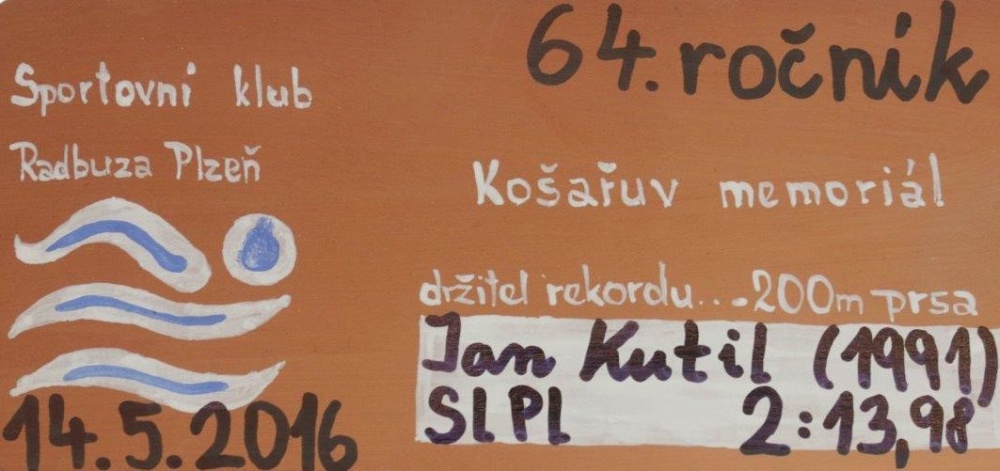 64. ročník
Sportovní klub
Radbuza Plzeň
Košařuv memoriál
držitel rekordu...200m prsa
Jan Kutil (1991)
SlPl 2:13,98
14.5.2016